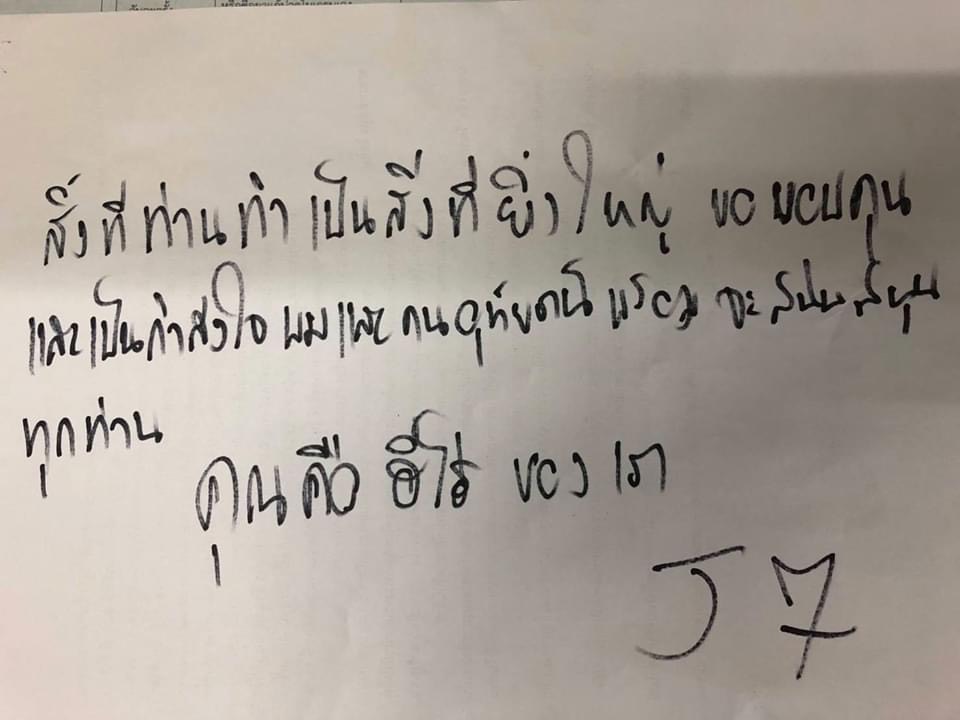 สิ่งที่ท่านทำ เป็นสิ่งที่ยิ่งใหญ่ ขอขอบคุณ
และเป็นกำลังใจ ผมและ คน พร้อม จะสนับสนุน
ทุกท่าน
คุณคือ ฮีโร่ ของเรา
J 7